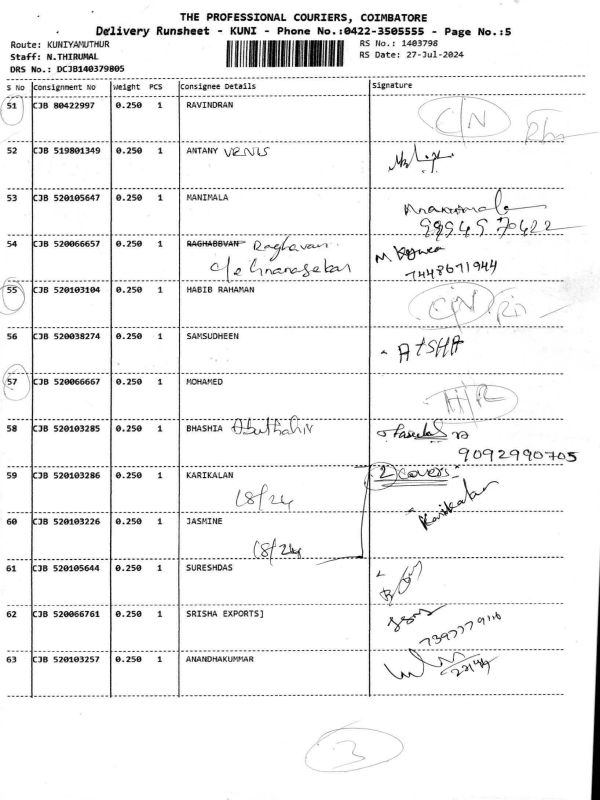 THE PROFESSIONAL COURIERS, COIMBATORE
Delivery Runsheet - KUNI - Phone No.:0422-3505555 - Page No.:5
Route: KUNIYAMUTHUR RS No.: 1403798
Staff: N.THIRUMAL RS Date: 27-Jul-2024
DRS No.: DCJB140379805
S No Consignment No Weight PCS Consignee Details Signature
51 CJB 80422997 0.250 1 RAVINDRAN C/N
52 CJB 519801349 0.250 1 ANTANY VENIS
53 CJB 520105647 0.250 1 MANIMALA Manimala
9994570422
54 CJB 520066657 0.250 1 RAGHABBVAN Raghavan
7448671944
55 CJB 520103104 0.250 1 HABIB RAHAMAN C/N
56 CJB 520038274 0.250 1 SAMSUDHEEN AISHA
57 CJB 520066667 0.250 1 MOHAMED
58 CJB 520103285 0.250 1 BHASHIA Abuthahir
9092990705
59 CJB 520103286 0.250 1 KARIKALAN 2 covers
18/24 Karikalan
60 CJB 520103226 0.250 1 JASMINE
18/24
61 CJB 520105644 0.250 1 SURESHDAS
62 CJB 520066761 0.250 1 SRISHA EXPORTS]
63 CJB 520103257 0.250 1 ANANDHAKUMMAR
3